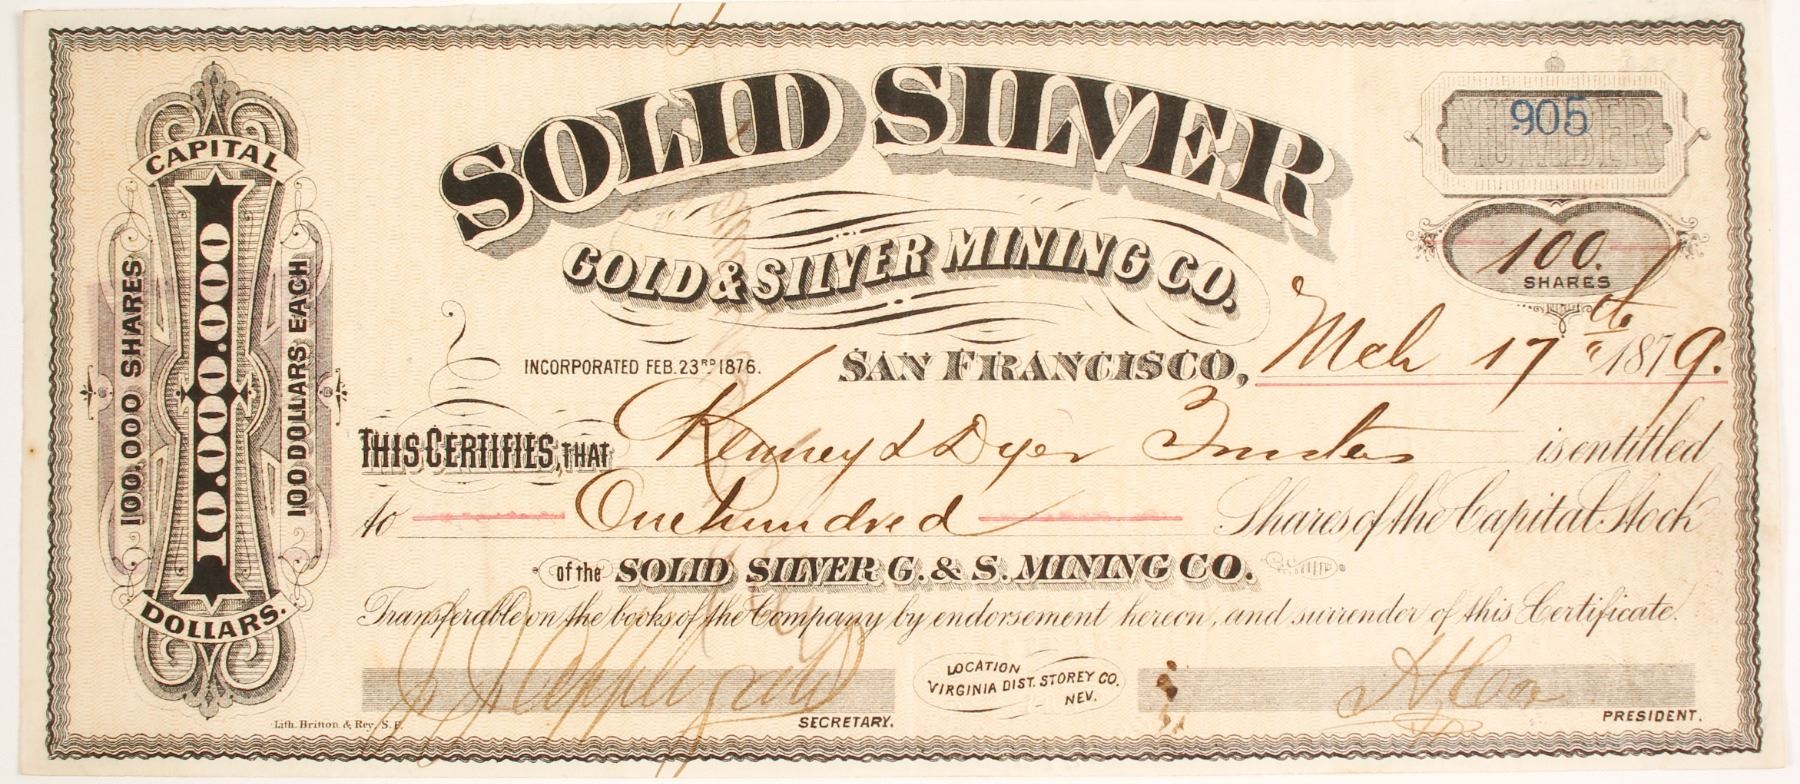 SOLID SILVER
GOLD & SILVER MINING CO.
NUMBER
905
100.
SHARES
CAPITAL
10.000.000
DOLLARS.
100.000 SHARES
100 DOLLARS EACH
INCORPORATED FEB. 23RD 1876.
SAN FRANCISCO, Mch 17th 1879.
THIS CERTIFIES, THAT Kenney & Dyer Trustees is entitled
to One hundred Shares of the Capital Stock
of the SOLID SILVER G. & S. MINING CO.
Transferable on the books of the Company by endorsement hereon, and surrender of this Certificate.
LOCATION
VIRGINIA DIST. STOREY CO.
NEV.
SECRETARY.
PRESIDENT.
Lith. Britton & Rey, S.F.